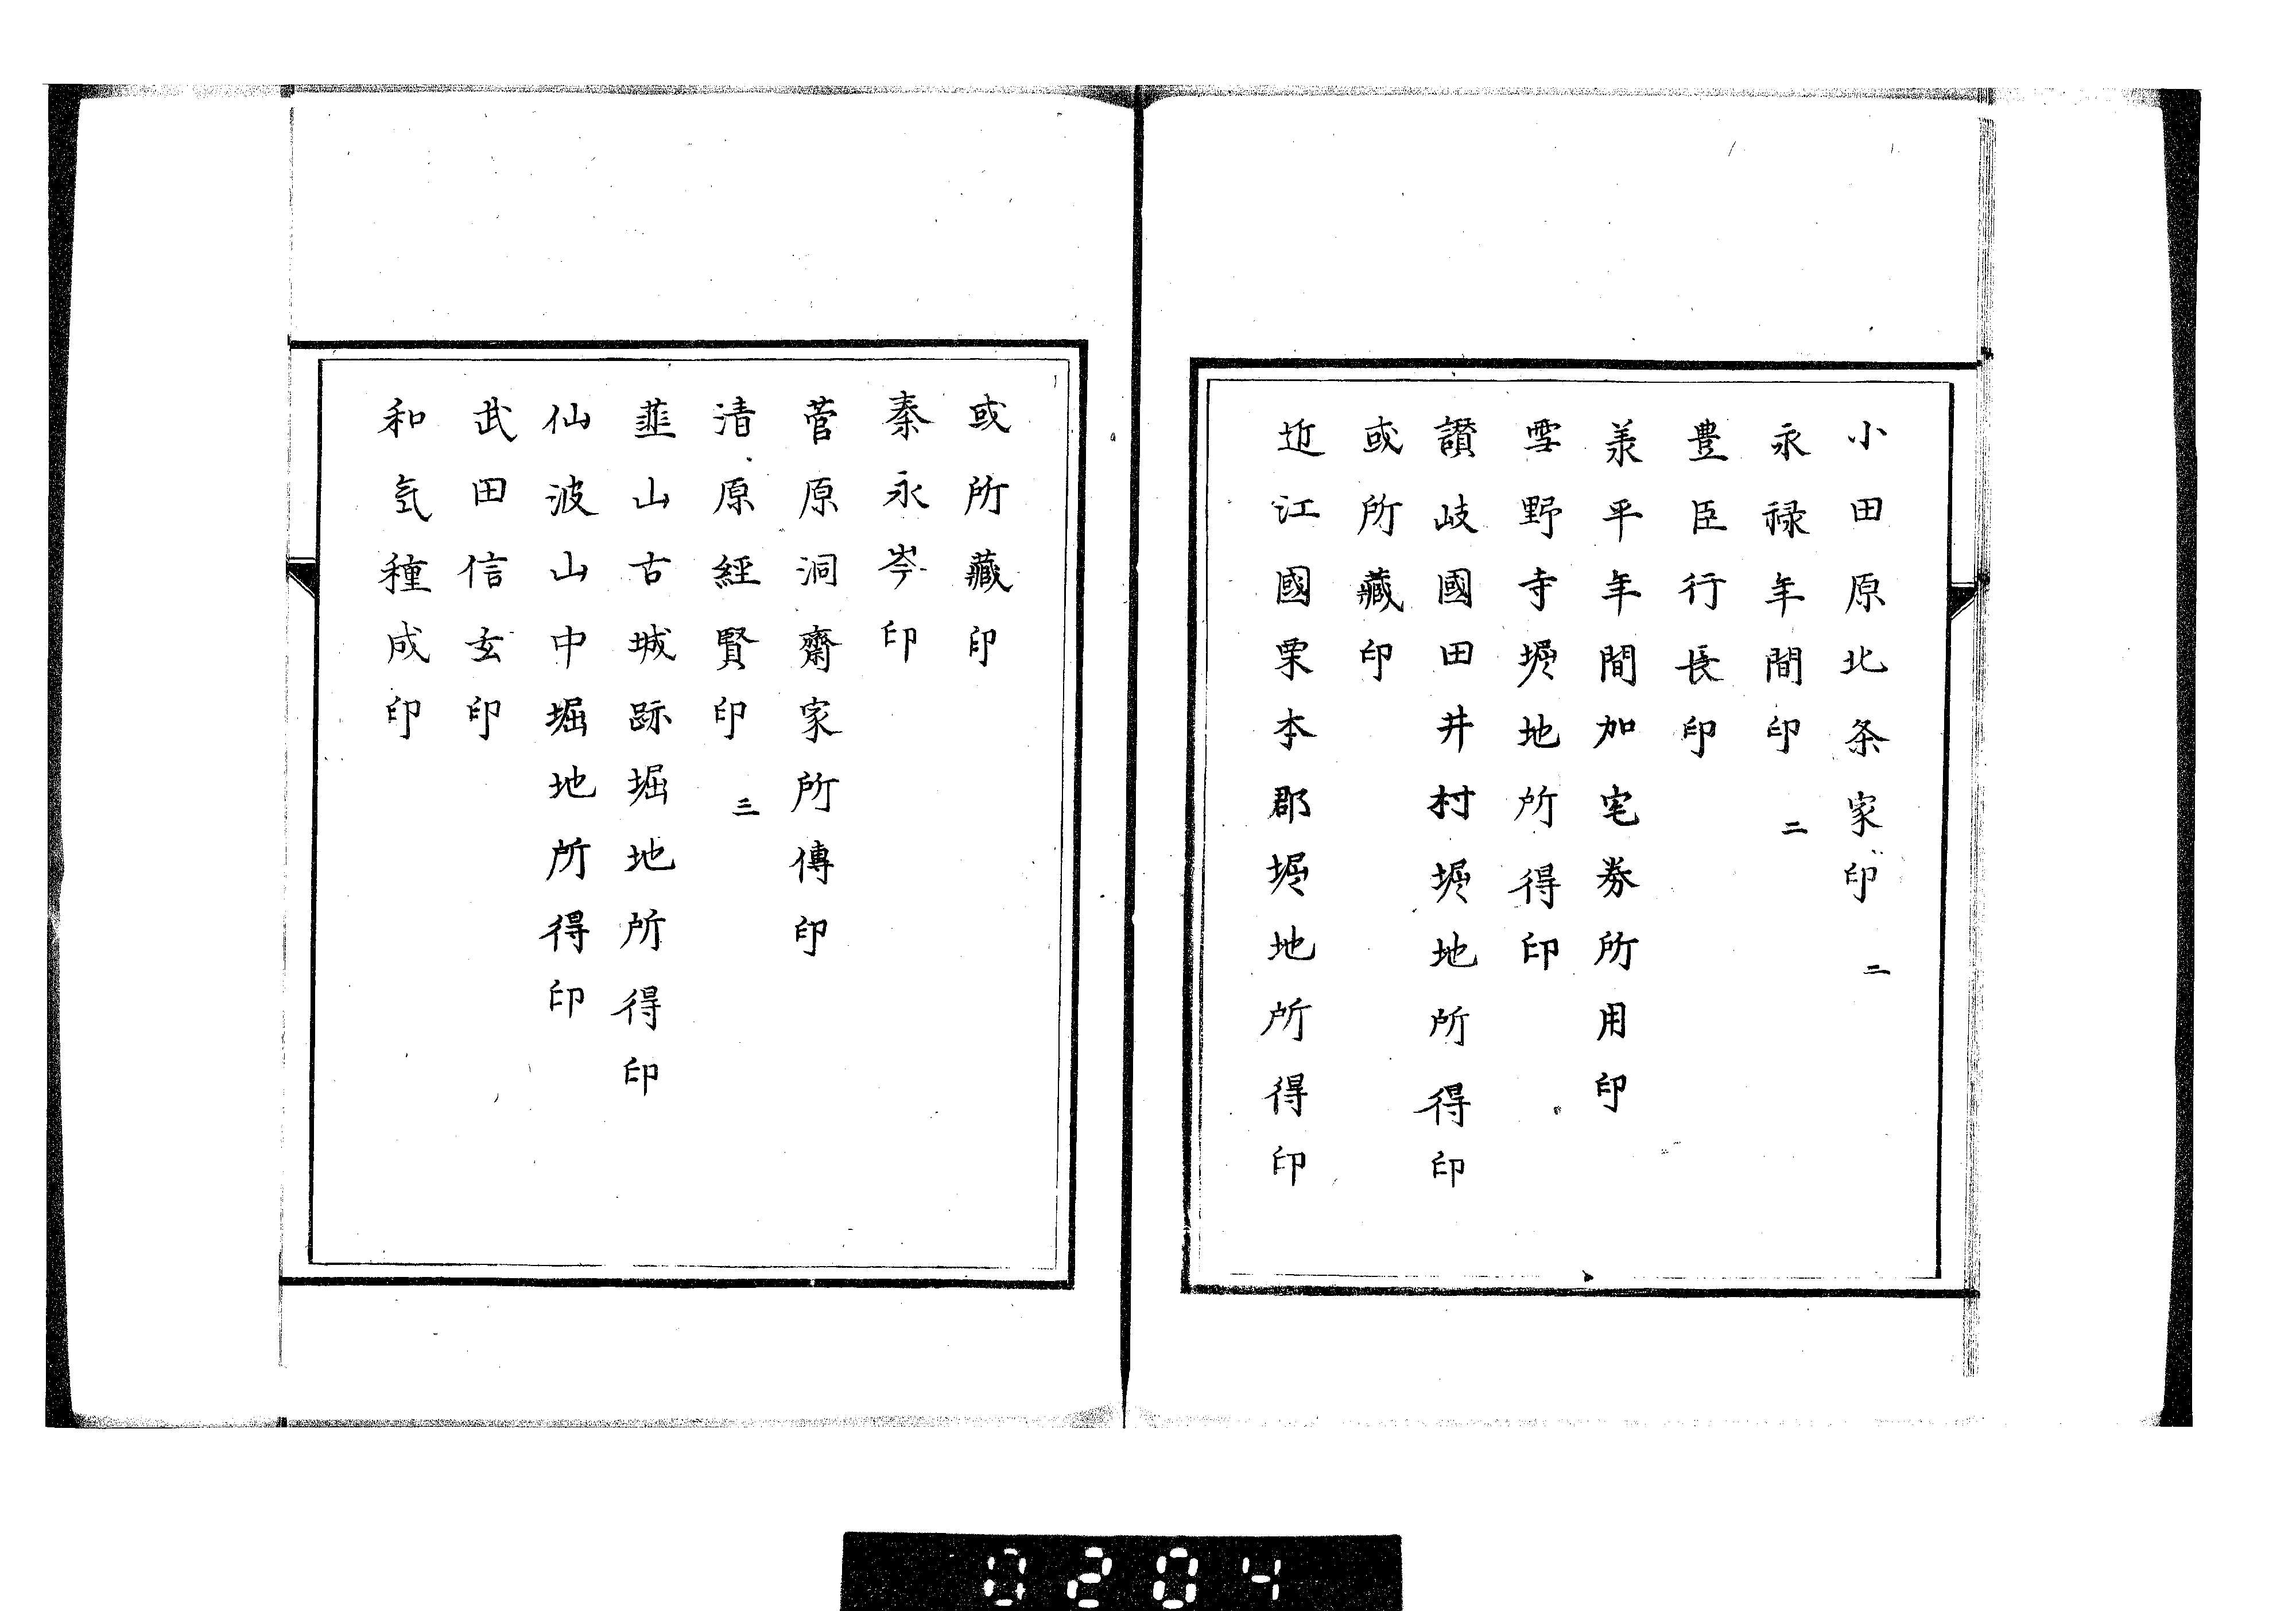 小田原北条家印 二
永禄年間印 二
豊臣行長印
羕平年間加宅券所用印
雪野寺堀地所得印
讃岐國田井村堀地所得印
或所藏印
近江國栗本郡堀地所得印
或所藏印
秦永岑印
菅原洞齋家所傳印
清原經賢印 三
韮山古城跡堀地所得印
仙波山中堀地所得印
武田信玄印
和気種成印
0204